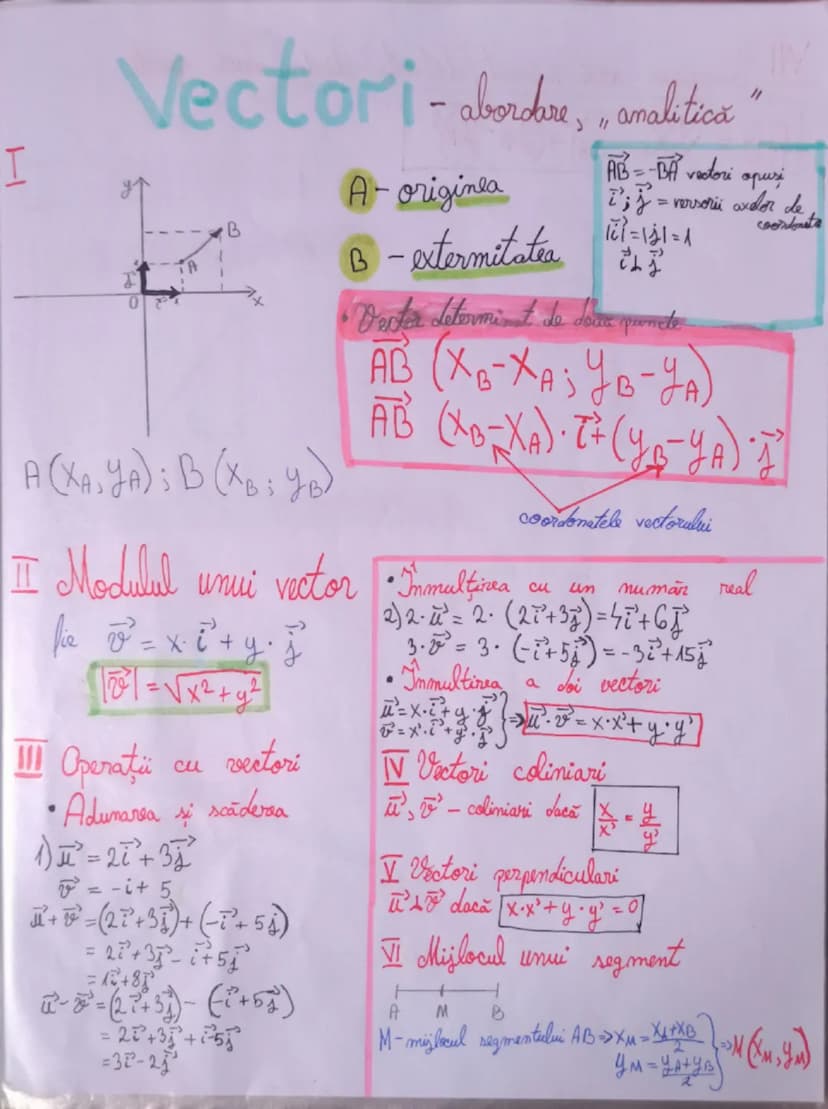 Vectori - abordare, „analitică"
I
y
B
A
j⃗
O
i⃗
x
A(x_A, y_A); B(x_B; y_B)
A - originea
B - extermitatea
A⃗B⃗ = -B⃗A⃗ vectori opuși
i⃗; j⃗ = versorii axelor de
coordonate
|i⃗| = |j⃗| = 1
i⃗ ⊥ j⃗
• Vector determinat de două puncte
A⃗B⃗ (x_B - x_A; y_B - y_A)
A⃗B⃗ (x_B - x_A) · i⃗ + (y_B - y_A) · j⃗
coordonatele vectorului
II Modulul unui vector
fie v⃗ = x · i⃗ + y · j⃗
|v⃗| = √(x² + y²)
III Operații cu vectori
• Adunarea și scăderea
1) u⃗ = 2i⃗ + 3j⃗
v⃗ = -i + 5
u⃗ + v⃗ = (2i⃗ + 3j⃗) + (-i⃗ + 5j⃗)
= 2i⃗ + 3j⃗ - i⃗ + 5j⃗
= 1i⃗ + 8j⃗
u⃗ - v⃗ = (2i⃗ + 3j⃗) - (-i⃗ + 5j⃗)
= 2i⃗ + 3j⃗ + i⃗ - 5j⃗
= 3i⃗ - 2j⃗
• Înmulțirea cu un număr real
2) 2 · u⃗ = 2 · (2i⃗ + 3j⃗) = 4i⃗ + 6j⃗
3 · v⃗ = 3 · (-i⃗ + 5j⃗) = -3i⃗ + 15j⃗
• Înmultirea a doi vectori
u⃗ = x · i⃗ + y · j⃗
v⃗ = x' · i⃗ + y' · j⃗ } ⇒ u⃗ · v⃗ = x · x' + y · y'
IV Vectori coliniari
u⃗, v⃗ - coliniari dacă x/x' = y/y'
V Vectori perpendiculari
u⃗ ⊥ v⃗ dacă x · x' + y · y' = 0
VI Mijlocul unui segment
A M B
M - mijlocul segmentului AB ⇒ x_M = (x_A + x_B)/2
y_M = (y_A + y_B)/2 } ⇒ M(x_M, y_M)